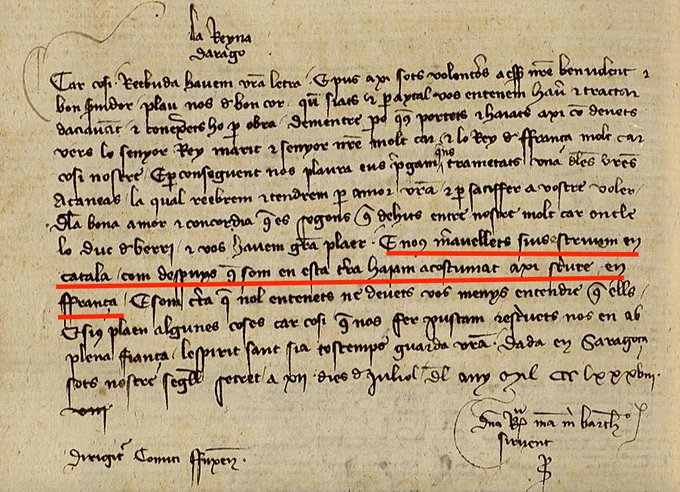 la Reyna
darago
Car cosi · Reebuda havem vr̃a letra · E pus axi sots volenteros a esser nr̃e benvolent e
bon servidor · plau nos d bon cor · que siats e per aytal vos entenem haver e tractar
daciavant e conexerets ho per obra · dementre pero queus portets e haiats axi com devets
vers lo senyor Rey marit e senyor nr̃e molt car · e lo Rey de ffrança molt car
cosi nostre · E per conseguent nos plaura eus pregam quens trametats una d les vr̃es
Acaneas la qual reebrem e tendrem per amor vr̃a e per satisffer a vostre voler ·
Dla bona amor e concordia q̃ es segons q̃ dehits entre nostre molt car oncle
lo duc d berri e vos havem gr̃a plaer · E nous maravellets sius escrivim en
catala · com despuys q̃ som en esta terra haiam acostumat axi scriure en
ffrança · E som certa q̃ nol entenets ne devets vos menys entendre q̃ ells ·
E sius plaen algunes coses car cosi q̃ nos fer puscam rescrivets nos en ab
plena fiança · lespirit sant sia tostemps guarda vr̃a · Dada en Saragoça
sots nostre segell secret · a xii · dies d Juliol · dl any Mil CCC lxxxviii ·
Dna Rª man m barth°
sirvent
p
Dirigitr Comiti ffuxen